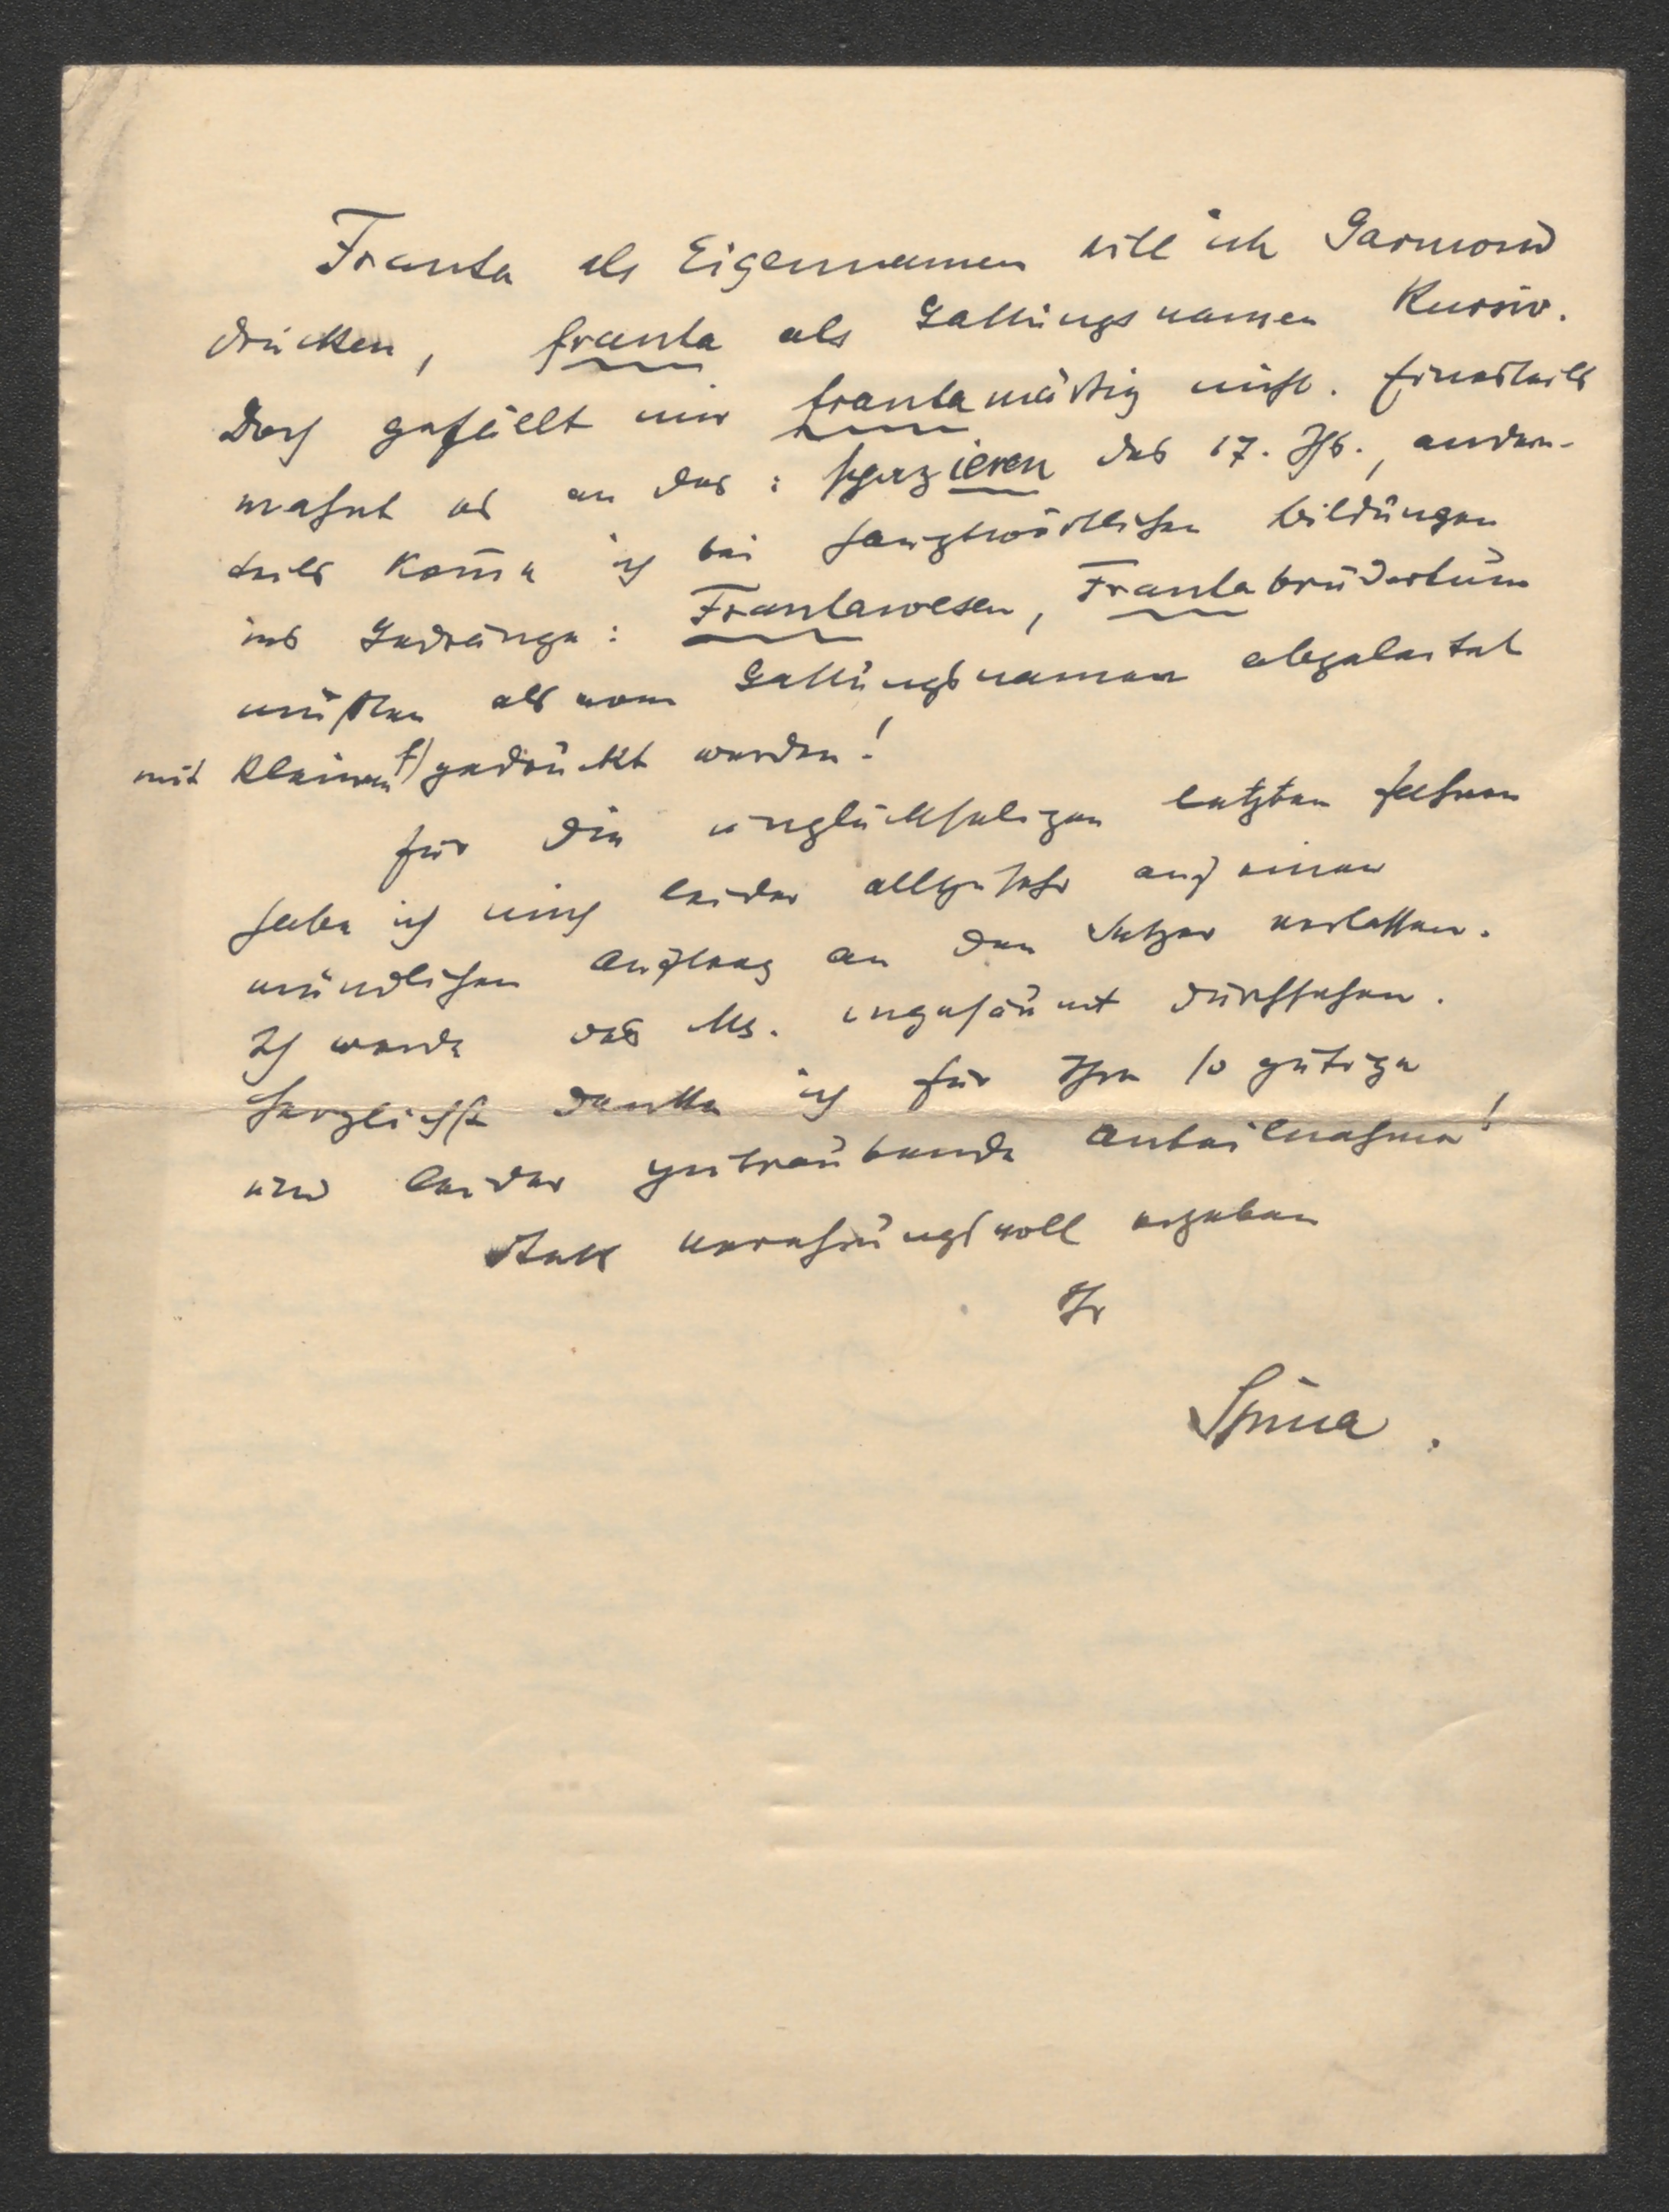 Franta als Eigennamen will ich Garmond
drucken, franta als Gattungsnamen Kursiv.
Doch gefällt mir frantamäßig nicht. Einesteils
mahnt es an das: spazieren des 17. Jh., andern-
teils kom̄e ich bei hauptwörtlichen Bildungen
ins Gedränge: Frantawesen, Frantabrüdertum
müßten als vom Gattungsnamen abgeleitet
mit kleinem f) gedruckt werden!
Für die unglückseligen letzten Fahnen
habe ich mich leider allzusehr auf einen
mündlichen Auftrag an den Setzer verlassen.
Ich werde das Ms. ungesäumt durchsehen.
Herzlichst danke ich für Ihre so gütige
und leider zeitraubende Anteilnahme!
Stets verehrungsvoll ergeben
Ihr
Spina.